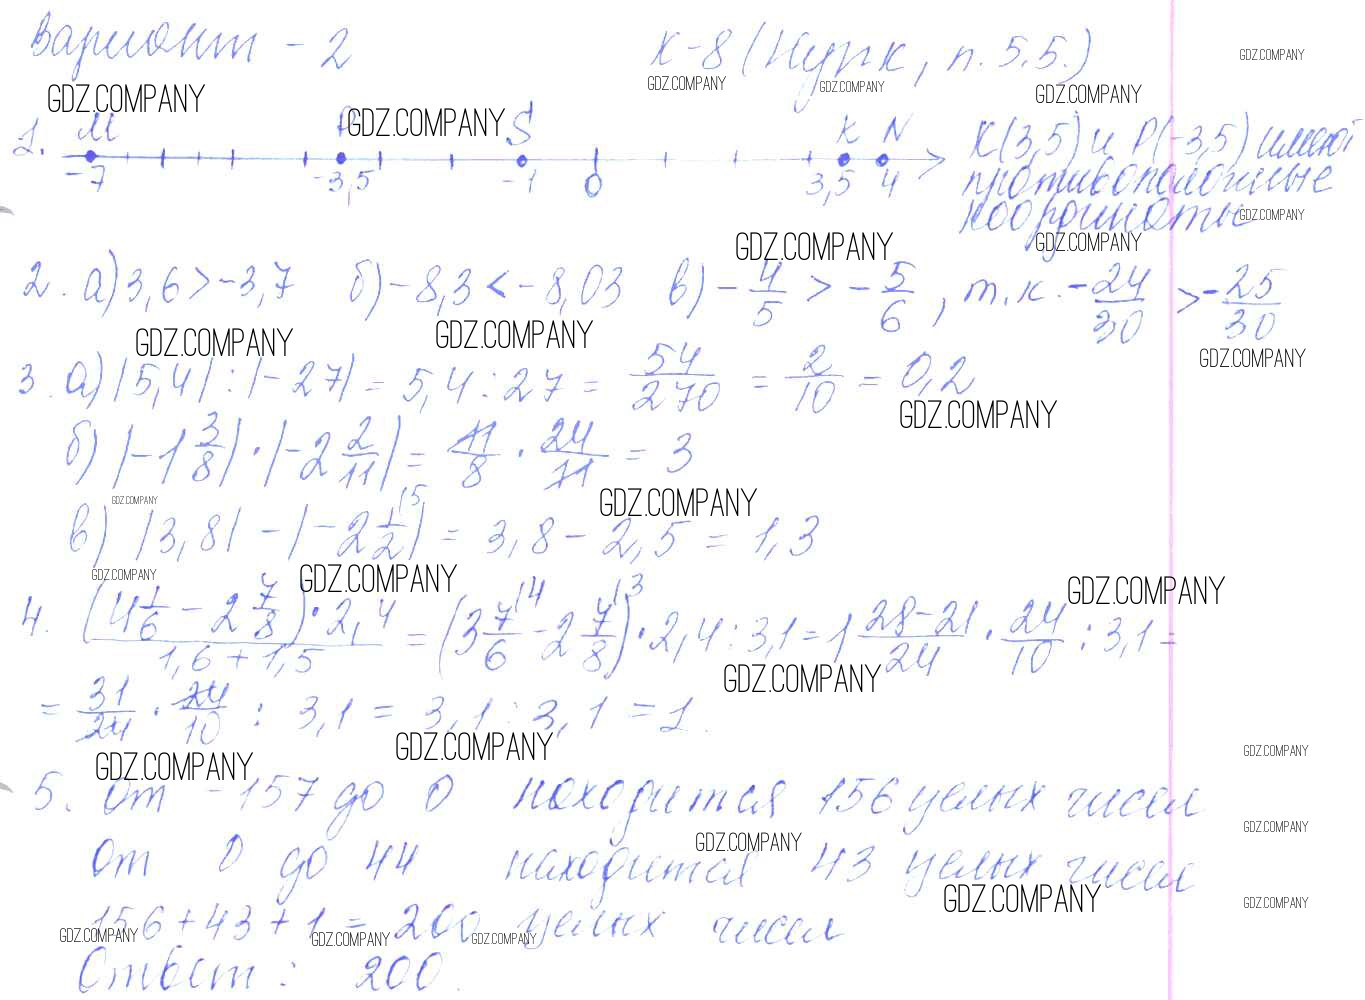 Вариант - 2 К-8 (Нурк, п. 5.5.)
GDZ.COMPANY GDZ.COMPANY GDZ.COMPANY
GDZ.COMPANY GDZ.COMPANY
1. М Р GDZ.COMPANY S K N K(3,5) и P(-3,5) имеют
-7 -3,5 -1 0 3,5 4 противоположные
координаты GDZ.COMPANY
GDZ.COMPANY GDZ.COMPANY
2. а) 3,6 > -3,7 б) -8,3 < -8,03 в) -4/5 > -5/6, т.к. -24/30 > -25/30
GDZ.COMPANY GDZ.COMPANY GDZ.COMPANY
3. а) |5,4| : |-27| = 5,4 : 27 = 54/270 = 2/10 = 0,2
GDZ.COMPANY
б) |-1 3/8| · |-2 2/11| = 11/8 · 24/11 = 3
GDZ.COMPANY GDZ.COMPANY
в) |3,8| - |-2 1/2 \5| = 3,8 - 2,5 = 1,3
GDZ.COMPANY GDZ.COMPANY GDZ.COMPANY
4. (4 1/6 - 2 7/8) · 2,4 / 1,6 + 1,5 = (3 7/6 \4 - 2 7/8 \3) · 2,4 : 3,1 = 1 28-21/24 · 24/10 : 3,1 =
GDZ.COMPANY
= 31/24 · 24/10 : 3,1 = 3,1 : 3,1 = 1.
GDZ.COMPANY GDZ.COMPANY GDZ.COMPANY
5. От -157 до 0 находится 156 целых чисел
GDZ.COMPANY GDZ.COMPANY
От 0 до 44 находится 43 целых чисел
GDZ.COMPANY GDZ.COMPANY
156 + 43 + 1 = 200 целых чисел
GDZ.COMPANY GDZ.COMPANY GDZ.COMPANY
Ответ: 200.